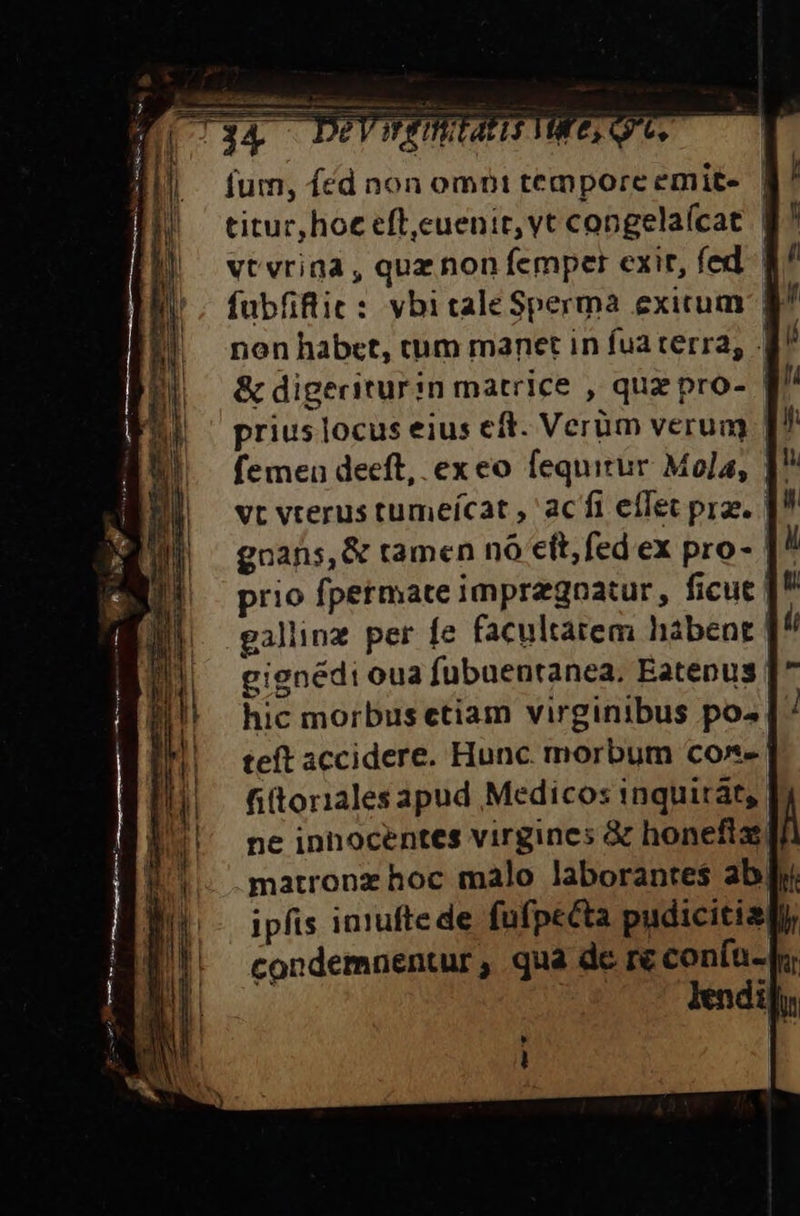 34 De Virginitatis Vire, &c.
ſum, ſed non omni tempore emit-
titur, hoc eſt, euenit, vt congelaſcat
vt vrina, quæ non ſemper exit, ſed
ſubſiſtit: vbi tale Sperma exitum
non habet, tum manet in ſua terra,
& digeritur in matrice, quæ pro-
prius locus eius eſt. Verùm verum
ſemen deeſt, ex eo ſequitur Mola,
vt vterus tumeſcat, ac ſi eſſet præ-
gnans, & tamen nō eſt, ſed ex pro-
prio ſpermate imprægnatur, ſicut
gallinæ per ſe facultatem habent
gignēdi oua ſubuentanea. Eatenus
hic morbus etiam virginibus po-
teſt accidere. Hunc morbum con-
ſiſtoriales apud Medicos inquirāt,
ne innocentes virgines & honeſtæ
matronæ hoc malo laborantes ab
ipſis iniuſte de ſuſpecta pudicitia
condemnentur, qua de re conſu-
lendi